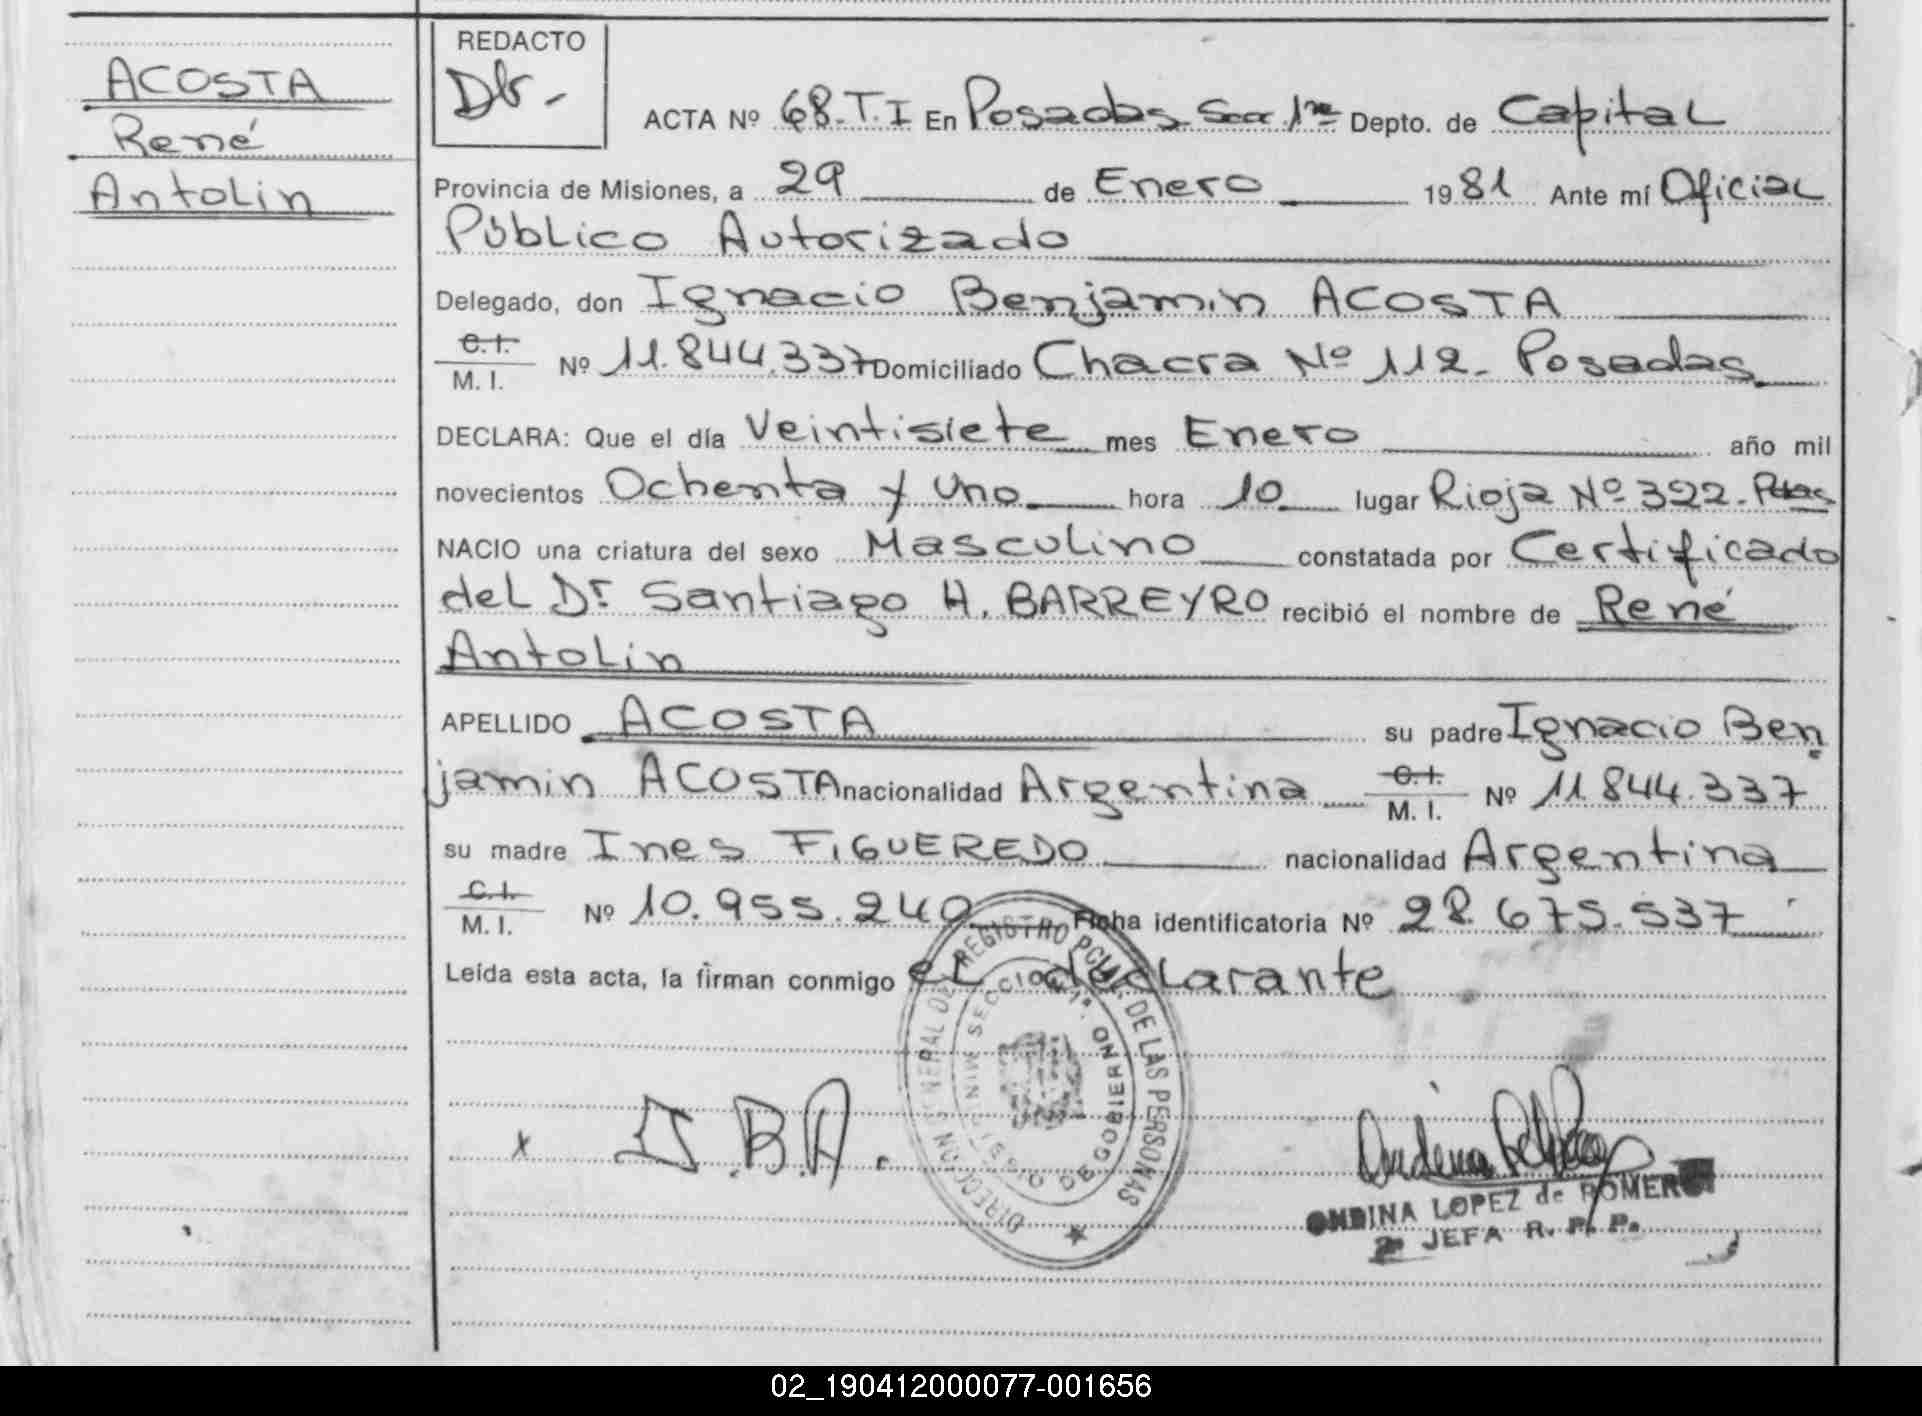 ACOSTA
René
Antolin
REDACTO
ACTA Nº 68.T.I En Posadas Secc. 1ra Depto. de Capital
Provincia de Misiones, a 29 de Enero 1981 Ante mí Oficial
Público Autorizado
Delegado, don Ignacio Benjamin ACOSTA
C.I. / M. I. Nº 11.844.337 Domiciliado Chacra Nº 112. Posadas
DECLARA: Que el día Veintisiete mes Enero año mil
novecientos Ochenta y Uno hora 10 lugar Rioja Nº 322. Pdas
NACIO una criatura del sexo Masculino constatada por Certificado
del Dr. Santiago H. BARREYRO recibió el nombre de René
Antolin
APELLIDO ACOSTA su padre Ignacio Ben
jamin ACOSTA nacionalidad Argentina C.I. / M. I. Nº 11.844.337
su madre Ines FIGUEREDO nacionalidad Argentina
C.I. / M. I. Nº 10.955.240 Ficha identificatoria Nº 28.675.537
Leída esta acta, la firman conmigo el declarante
DIRECCION GENERAL DEL REGISTRO PCIAL. DE LAS PERSONAS
SECCION 1ª. MINISTERIO DE GOBIERNO
x I.B.A.
ONDINA LOPEZ de ROMERO
2ª JEFA R. P. P.
02_190412000077-001656